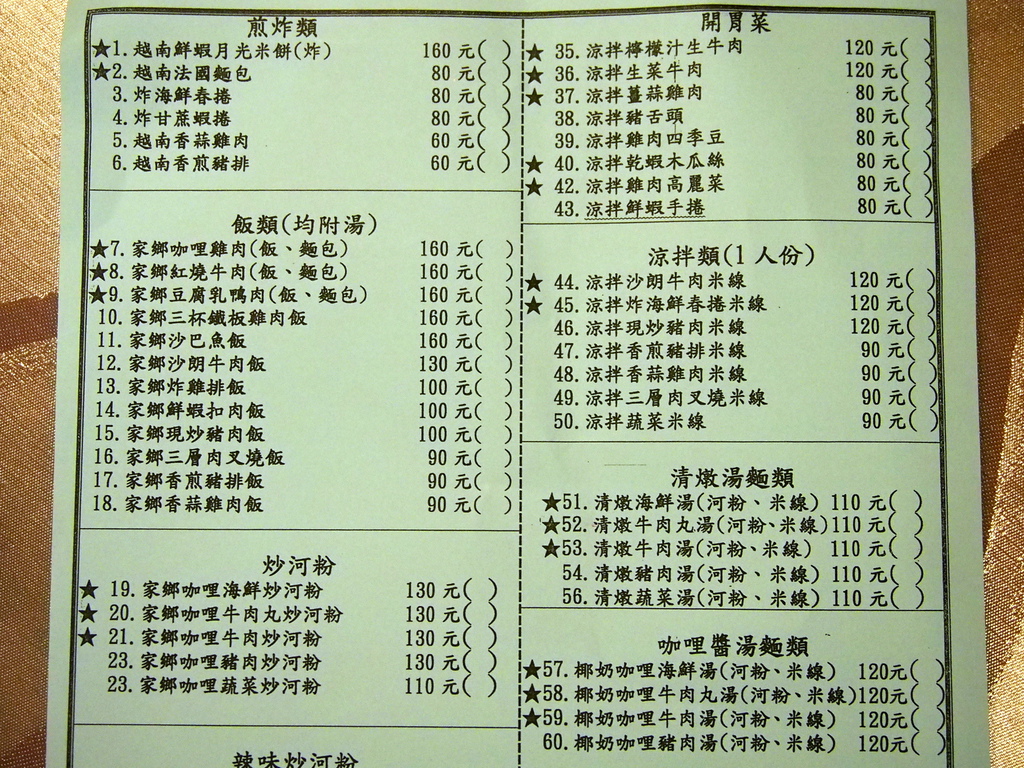 煎炸類
★1. 越南鮮蝦月光米餅(炸) 160 元( )
★2. 越南法國麵包 80 元( )
3. 炸海鮮春捲 80 元( )
4. 炸甘蔗蝦捲 80 元( )
5. 越南香蒜雞肉 60 元( )
6. 越南香煎豬排 60 元( )
飯類(均附湯)
★7. 家鄉咖哩雞肉(飯、麵包) 160 元( )
★8. 家鄉紅燒牛肉(飯、麵包) 160 元( )
★9. 家鄉豆腐乳鴨肉(飯、麵包) 160 元( )
10. 家鄉三杯鐵板雞肉飯 160 元( )
11. 家鄉沙巴魚飯 160 元( )
12. 家鄉沙朗牛肉飯 130 元( )
13. 家鄉炸雞排飯 100 元( )
14. 家鄉鮮蝦扣肉飯 100 元( )
15. 家鄉現炒豬肉飯 100 元( )
16. 家鄉三層肉叉燒飯 90 元( )
17. 家鄉香煎豬排飯 90 元( )
18. 家鄉香蒜雞肉飯 90 元( )
炒河粉
★ 19. 家鄉咖哩海鮮炒河粉 130 元( )
★ 20. 家鄉咖哩牛肉丸炒河粉 130 元( )
★ 21. 家鄉咖哩牛肉炒河粉 130 元( )
23. 家鄉咖哩豬肉炒河粉 130 元( )
23. 家鄉咖哩蔬菜炒河粉 110 元( )
辣味炒河粉
開胃菜
★ 35. 涼拌檸檬汁生牛肉 120 元( )
★ 36. 涼拌生菜牛肉 120 元( )
★ 37. 涼拌薑蒜雞肉 80 元( )
38. 涼拌豬舌頭 80 元( )
39. 涼拌雞肉四季豆 80 元( )
★ 40. 涼拌乾蝦木瓜絲 80 元( )
★ 42. 涼拌雞肉高麗菜 80 元( )
43. 涼拌鮮蝦手捲 80 元( )
涼拌類(1 人份)
★ 44. 涼拌沙朗牛肉米線 120 元( )
★ 45. 涼拌炸海鮮春捲米線 120 元( )
46. 涼拌現炒豬肉米線 120 元( )
47. 涼拌香煎豬排米線 90 元( )
48. 涼拌香蒜雞肉米線 90 元( )
49. 涼拌三層肉叉燒米線 90 元( )
50. 涼拌蔬菜米線 90 元( )
清燉湯麵類
★51. 清燉海鮮湯(河粉、米線) 110 元( )
★52. 清燉牛肉丸湯(河粉、米線) 110 元( )
★53. 清燉牛肉湯(河粉、米線) 110 元( )
54. 清燉豬肉湯(河粉、米線) 110 元( )
56. 清燉蔬菜湯(河粉、米線) 110 元( )
咖哩醬湯麵類
★57. 椰奶咖哩海鮮湯(河粉、米線) 120元( )
★58. 椰奶咖哩牛肉丸湯(河粉、米線)120元( )
★59. 椰奶咖哩牛肉湯(河粉、米線) 120元( )
60. 椰奶咖哩豬肉湯(河粉、米線) 120元( )